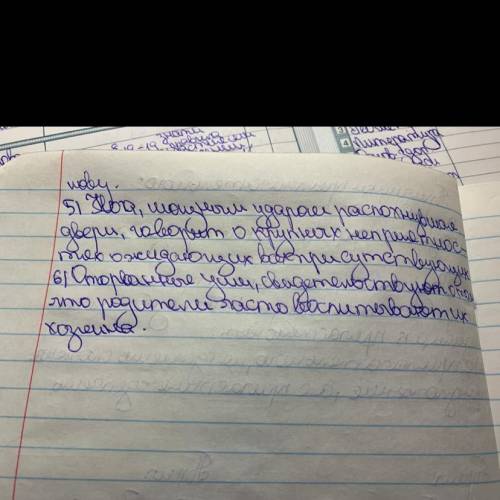 знати
8.10-19
Литература
4
нову.
5) Нога, мощным ударом распохнувшая
двери, говорит о крупных неприятнос-
тях ожидающих всех присутствующих
6) Оторванные уши, свидетельствуют о том
что родители часто воспитовают их
хозяина.